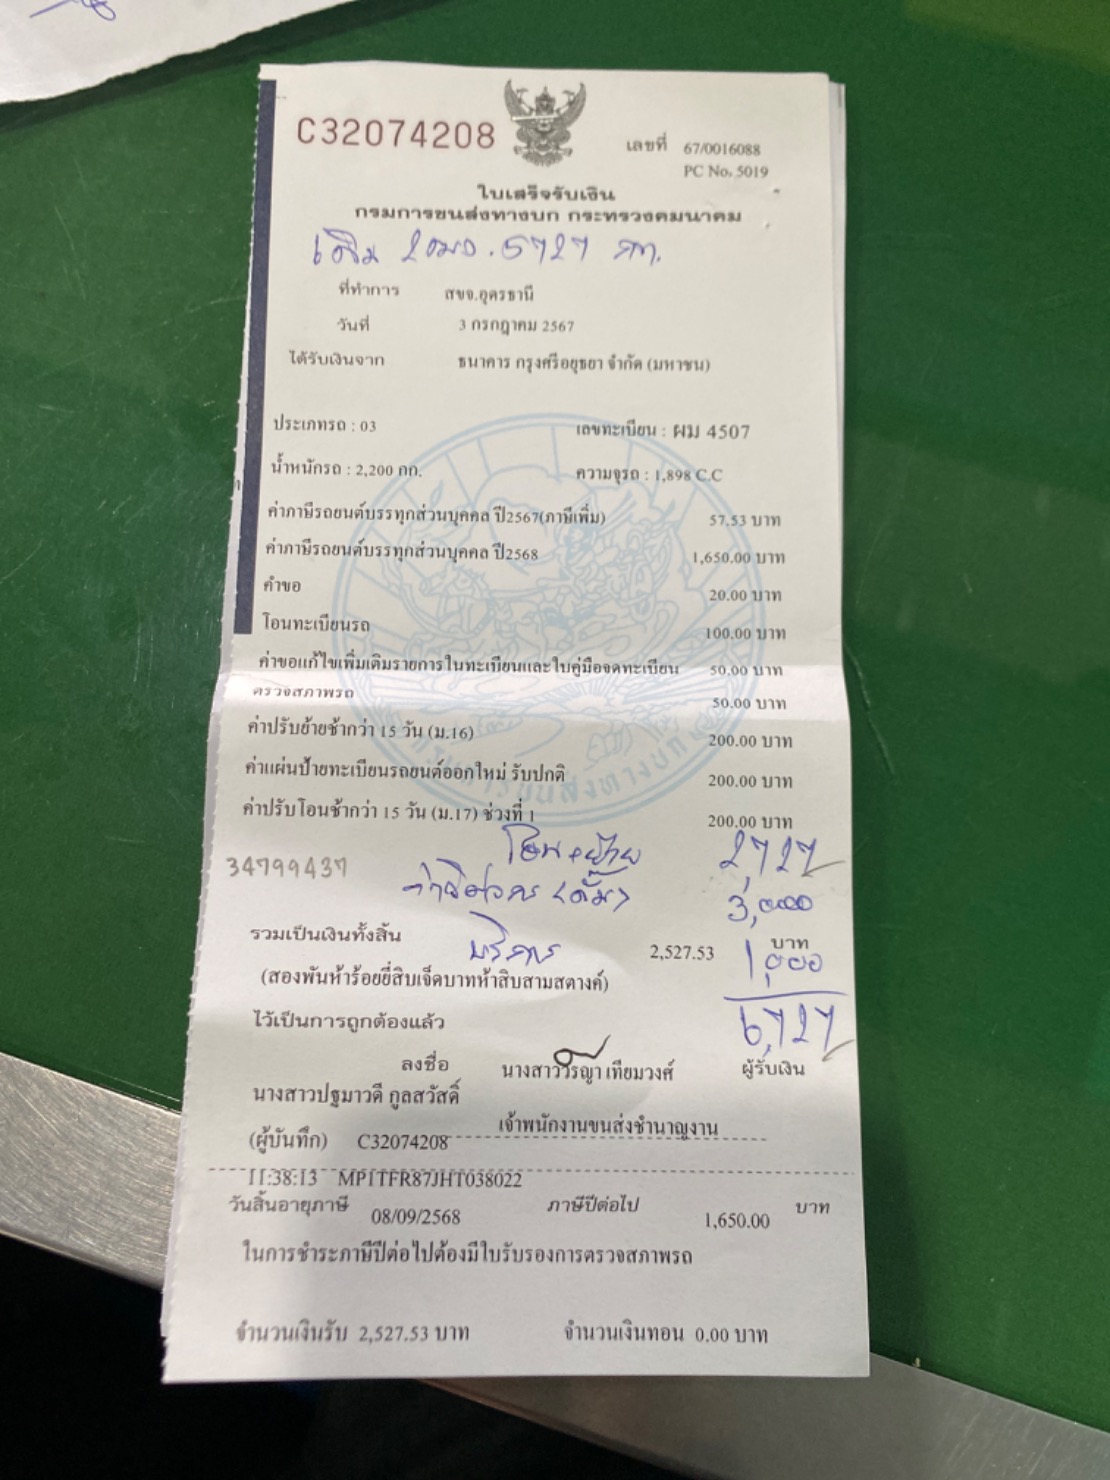 C32074208
เลขที่ 67/0016088
PC No. 5019
ใบเสร็จรับเงิน
กรมการขนส่งทางบก กระทรวงคมนาคม
เดิม 2ฒอ.5727 กท.
ที่ทำการ สขจ.อุดรธานี
วันที่ 3 กรกฎาคม 2567
ได้รับเงินจาก ธนาคาร กรุงศรีอยุธยา จำกัด (มหาชน)
ประเภทรถ : 03 เลขทะเบียน : ผม 4507
น้ำหนักรถ : 2,200 กก. ความจุรถ : 1,898 C.C
ค่าภาษีรถยนต์บรรทุกส่วนบุคคล ปี2567(ภาษีเพิ่ม) 57.53 บาท
ค่าภาษีรถยนต์บรรทุกส่วนบุคคล ปี2568 1,650.00 บาท
คำขอ 20.00 บาท
โอนทะเบียนรถ 100.00 บาท
ค่าขอแก้ไขเพิ่มเติมรายการในทะเบียนและใบคู่มือจดทะเบียน 50.00 บาท
ตรวจสภาพรถ 50.00 บาท
ค่าปรับย้ายช้ากว่า 15 วัน (ม.16) 200.00 บาท
ค่าแผ่นป้ายทะเบียนรถยนต์ออกใหม่ รับปกติ 200.00 บาท
ค่าปรับโอนช้ากว่า 15 วัน (ม.17) ช่วงที่ 1 200.00 บาท
โอน+ย้าย 2,727
34799437
3,000
รวมเป็นเงินทั้งสิ้น 2,527.53 บาท
บริการ 1,000
(สองพันห้าร้อยยี่สิบเจ็ดบาทห้าสิบสามสตางค์)
6,727
ไว้เป็นการถูกต้องแล้ว
ลงชื่อ นางสาววิรญา เทียมวงศ์ ผู้รับเงิน
นางสาวปฐมาวดี กูลสวัสดิ์
เจ้าพนักงานขนส่งชำนาญงาน
(ผู้บันทึก) C32074208
11:38:13 MP1TFR87JHT038022
วันสิ้นอายุภาษี 08/09/2568 ภาษีปีต่อไป 1,650.00 บาท
ในการชำระภาษีปีต่อไปต้องมีใบรับรองการตรวจสภาพรถ
จำนวนเงินรับ 2,527.53 บาท จำนวนเงินทอน 0.00 บาท